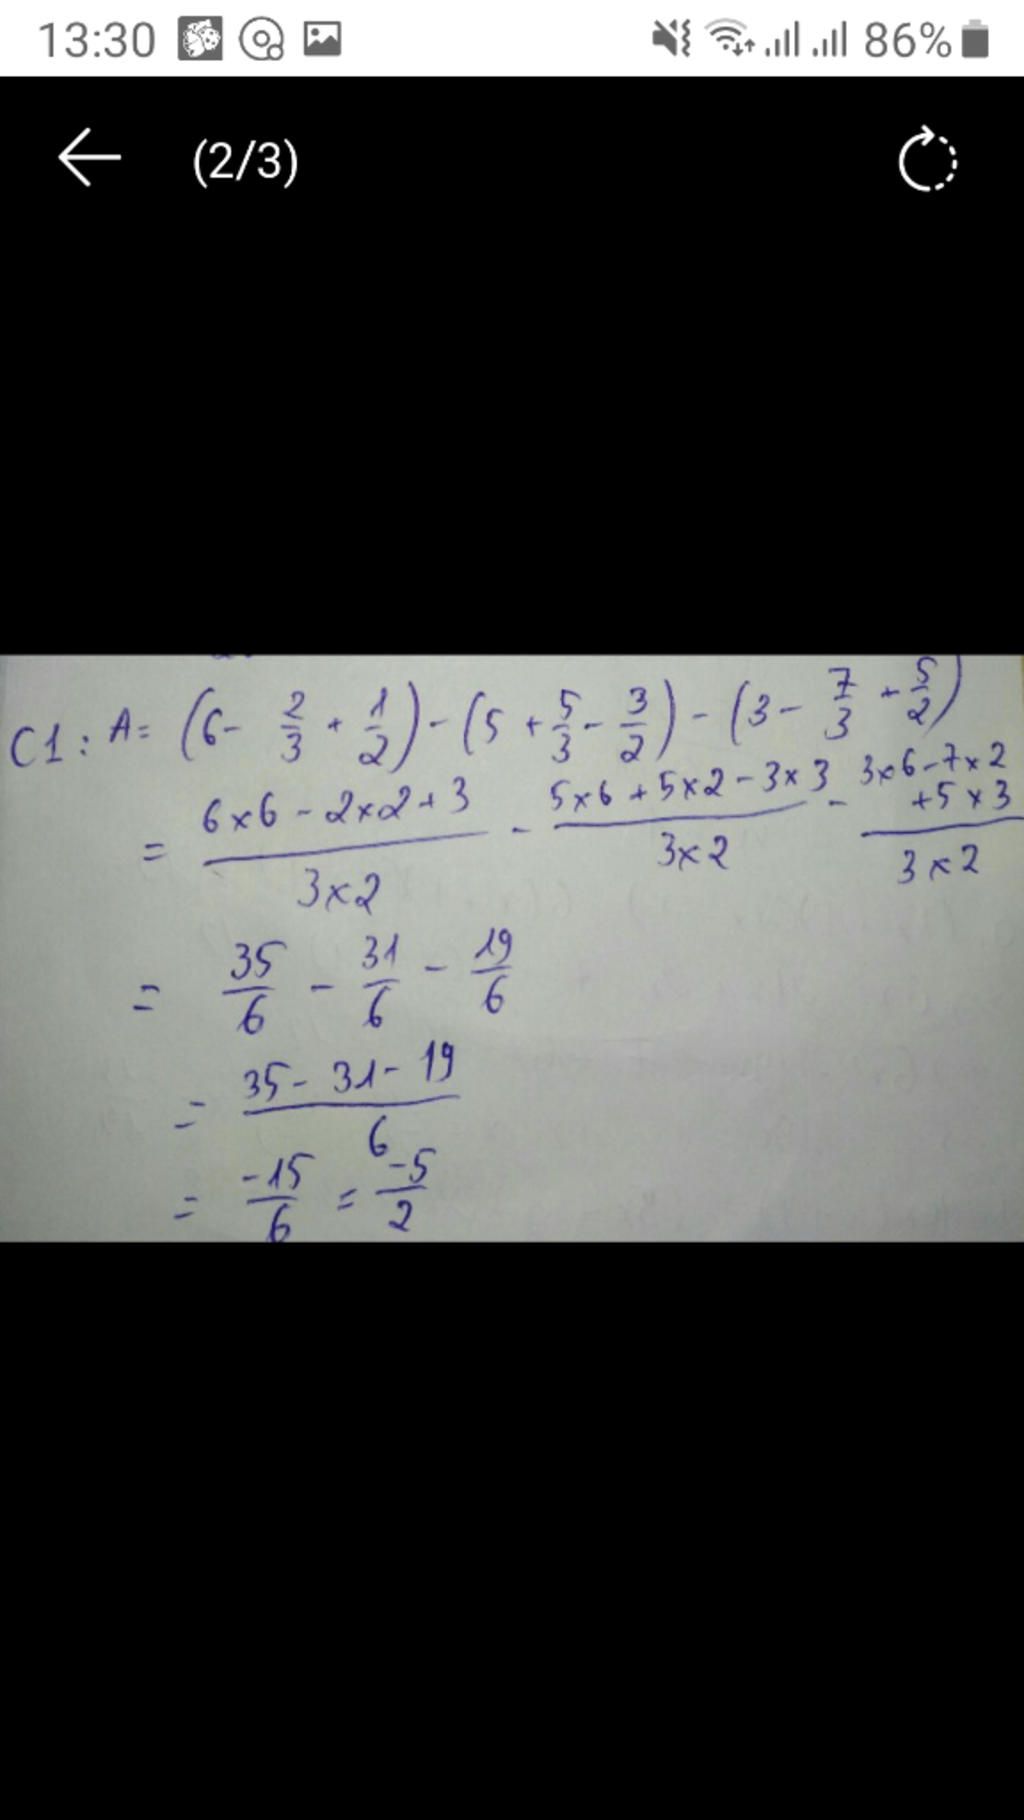 13:30 86%
(2/3)
C1: A = (6 - 2/3 + 1/2) - (5 + 5/3 - 3/2) - (3 - 7/3 + 5/2)
= (6x6 - 2x2 + 3)/(3x2) - (5x6 + 5x2 - 3x3)/(3x2) - (3x6 - 7x2 + 5x3)/(3x2)
= 35/6 - 31/6 - 19/6
= (35 - 31 - 19)/6
= -15/6 = -5/2